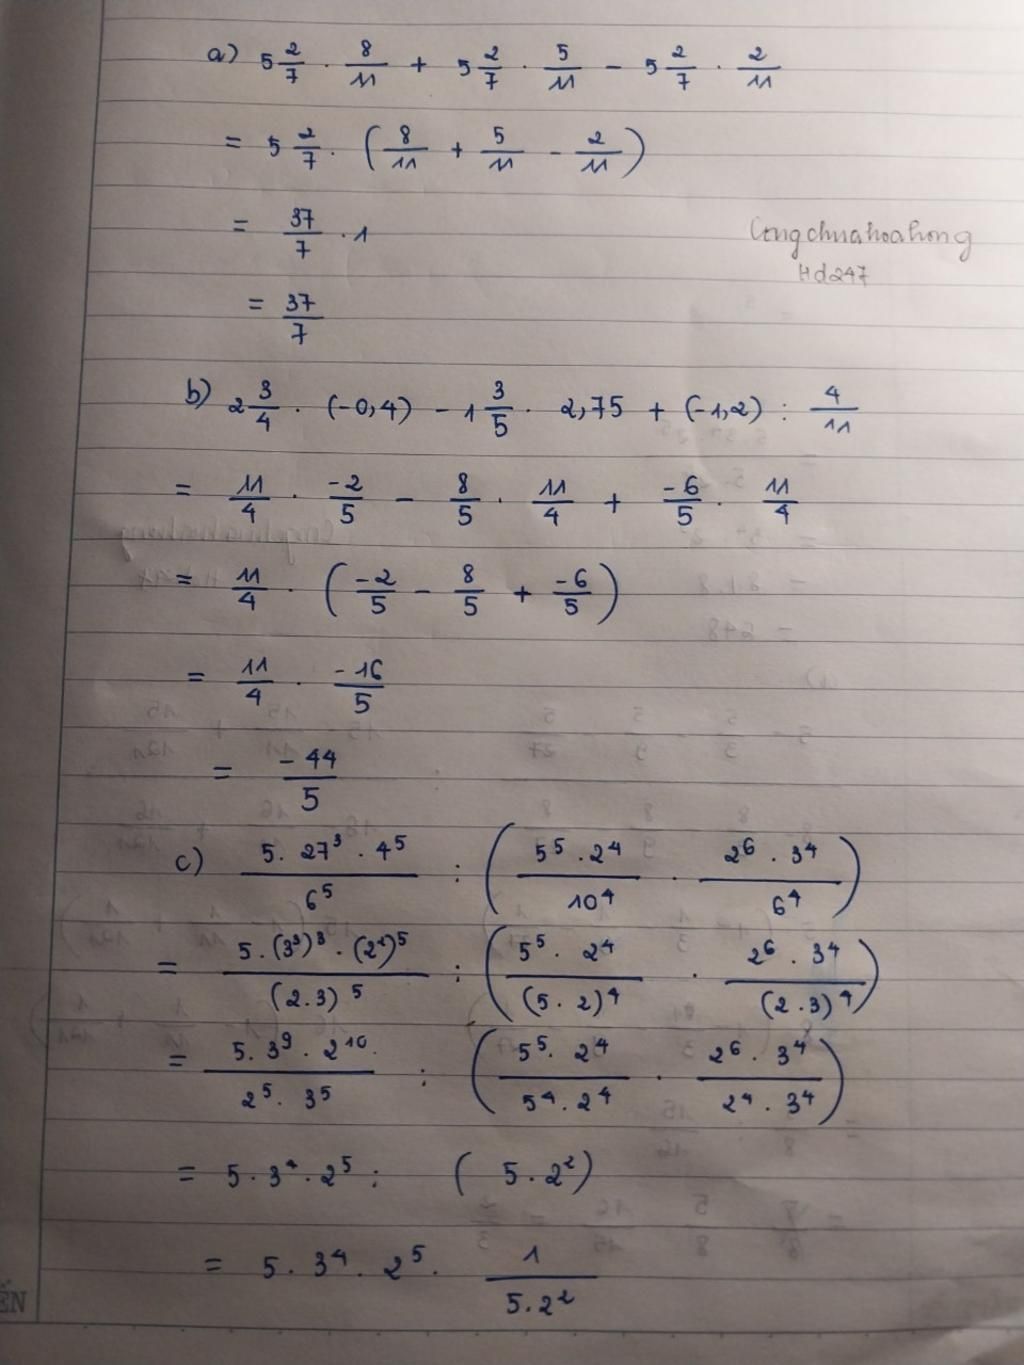 a) 5 2/7 . 8/11 + 5 2/7 . 5/11 - 5 2/7 . 2/11
= 5 2/7 . (8/11 + 5/11 - 2/11)
= 37/7 . 1
Congchuahoahong
Hd247
= 37/7
b) 2 3/4 . (-0,4) - 1 3/5 . 2,75 + (-1,2) : 4/11
= 11/4 . -2/5 - 8/5 . 11/4 + -6/5 . 11/4
= 11/4 . (-2/5 - 8/5 + -6/5)
= 11/4 . -16/5
= -44/5
c) 5. 27³ . 4⁵ / 6⁵ : (5⁵ . 2⁴ / 10⁴ . 2⁶ . 3⁴ / 6⁴)
= 5. (3³)³ . (2²)⁵ / (2.3)⁵ : (5⁵ . 2⁴ / (5. 2)⁴ . 2⁶ . 3⁴ / (2.3)⁴)
= 5. 3⁹ . 2¹⁰ / 2⁵. 3⁵ : (5⁵. 2⁴ / 5⁴. 2⁴ . 2⁶ . 3⁴ / 2⁴ . 3⁴)
= 5 . 3⁴ . 2⁵ : ( 5 . 2²)
= 5 . 3⁴ . 2⁵ . 1 / 5.2²
ẾN